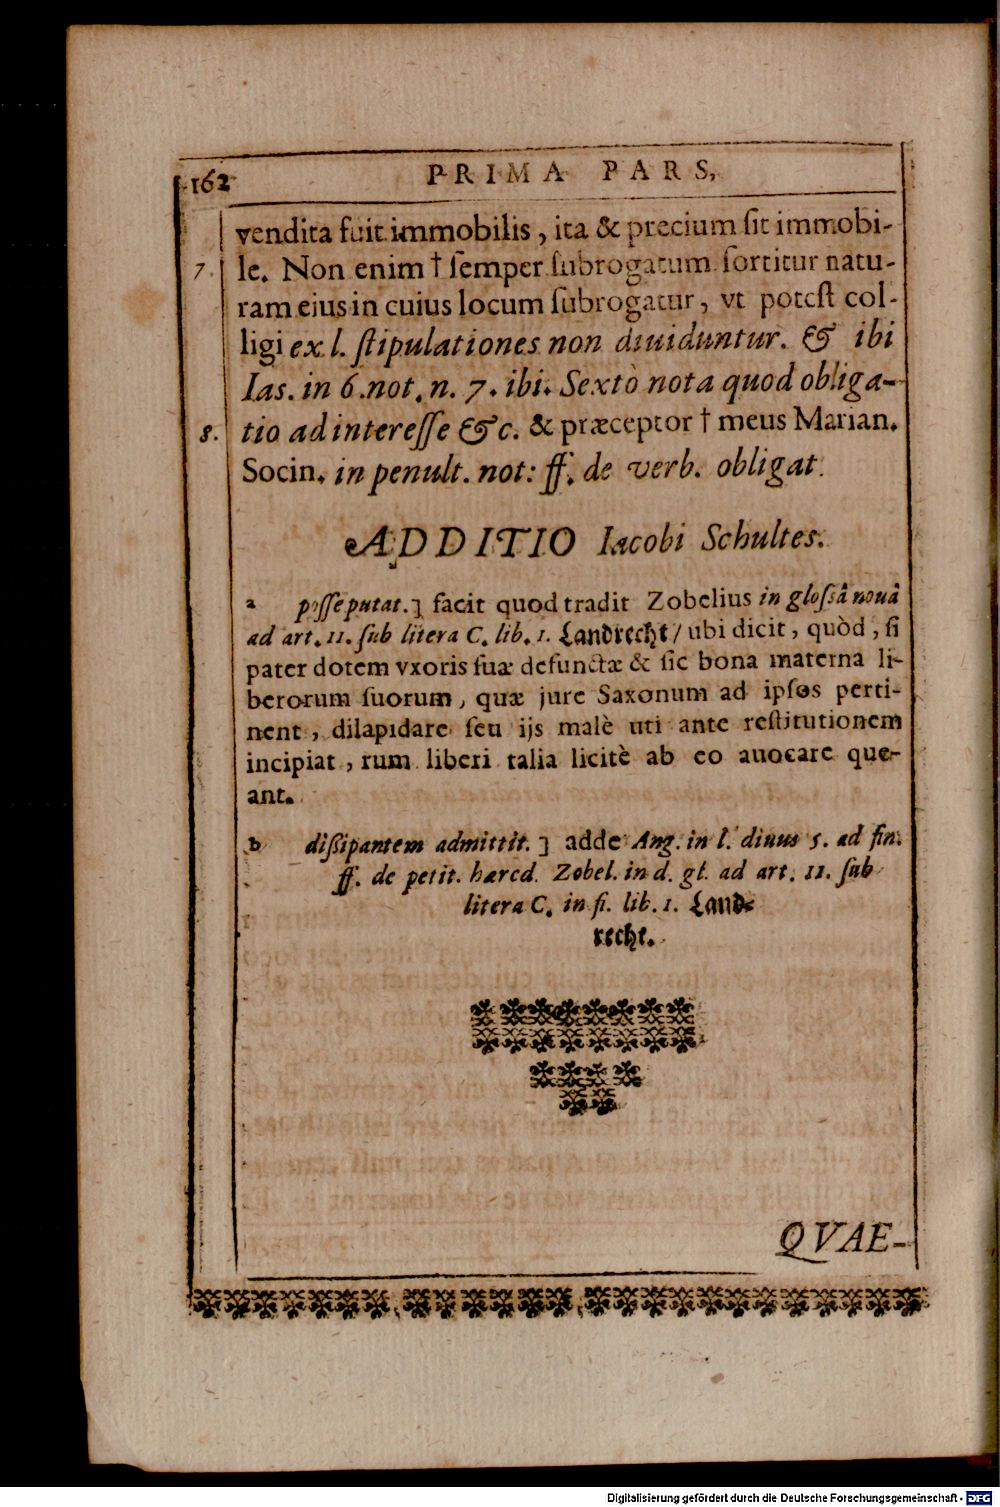 162 PRIMA PARS,
vendita fuit immobilis, ita & precium sit immobi-
7. le. Non enim † semper subrogatum sortitur natu-
ram eius in cuius locum subrogatur, vt potest col-
ligi ex l. stipulationes non diuiduntur. & ibi
Ias. in 6. not. n. 7. ibi. Sextò nota quod obliga-
8. tio ad interesse &c. & præceptor † meus Marian.
Socin. in penult. not: ff. de verb. obligat.
ADDITIO Iacobi Schultes.
a posse putat.] facit quod tradit Zobelius in glossâ nouâ
ad art. 11. sub litera C. lib. 1. Landrecht/ ubi dicit, quòd, si
pater dotem vxoris suæ defunctæ & sic bona materna li-
berorum suorum, quæ jure Saxonum ad ipsos perti-
nent, dilapidare seu ijs malè uti ante restitutionem
incipiat, tum liberi talia licitè ab eo auocare que-
ant.
b dissipantem admittit.] adde Ang. in l. diuus 5. ad fin.
ff. de petit. hæred. Zobel. in d. gl. ad art. 11. sub
litera C. in fi. lib. 1. Land-
recht.
QVAE-
Digitalisierung gefördert durch die Deutsche Forschungsgemeinschaft - DFG